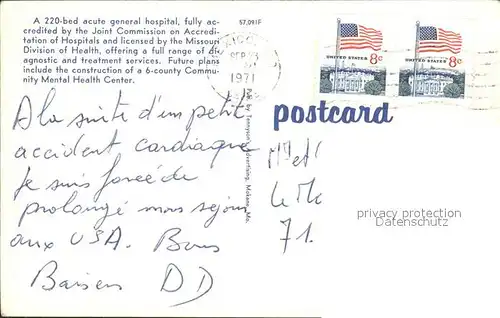 A 220-bed acute general hospital, fully ac-
credited by the Joint Commission on Accredi-
tation of Hospitals and licensed by the Missouri
Division of Health, offering a full range of di-
agnostic and treatment services. Future plans
include the construction of a 6-county Commu-
nity Mental Health Center.
57,091F
SEP
1971
UNITED STATES 8c
UNITED STATES 8c
postcard
Pub. by Tennyson Advertising, Mokane, Mo.
A la suite d'un petit
accident cardiaque
je suis forcée de
prolongé mon séjour
aux USA. Bons
Baisers DD
Mr et
Le
71.
privacy protection
Datenschutz